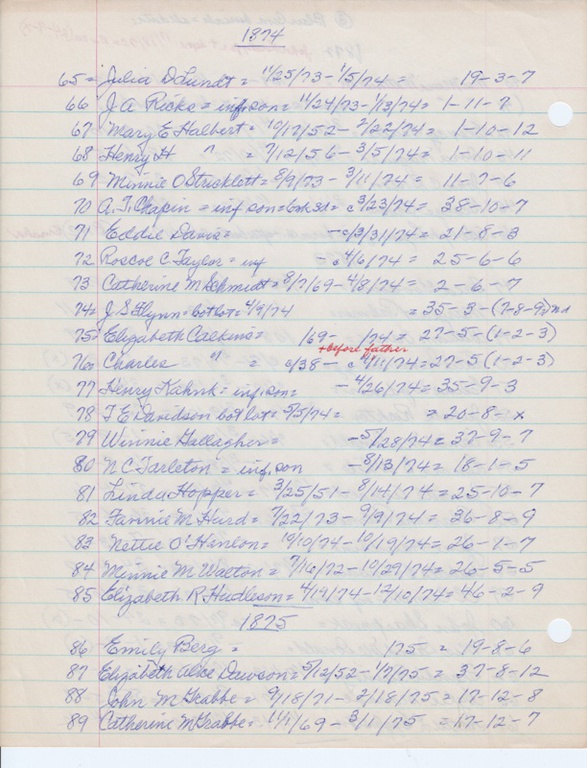 1874
65 = Julia DeLundt = 11/25/73 - 1/5/74 = 19-3-7
66 J A Ricks = inf. son = 11/24/73 - 1/13/74 = 1-11-7
67 Mary E Halbert = 10/17/52 - 2/22/74 = 1-10-12
68 Henry H " = 7/12/56 - 3/5/74 = 1-10-11
69 Minnie O Stricklett = 8/9/73 - 3/11/74 = 11-7-6
70 A. T. Chapin = inf son = c 3/23/74 = 38-10-7
71 Eddie Davis = - c/3/31/74 = 21-8-3
72 Roscoe C Taylor = inf - c 4/6/74 = 25-6-6
73 Catherine M Schmidt = 8/7/69 - 4/8/74 = 2-6-7
74 = J. S Flynn = bot lot = 4/9/74 = 35-3-(7-8-9)
75 = Elizabeth Calkins = /69 - /74 = 27-5-(1-2-3)
+ before father
76 = Charles " = c/38 - c 4/11/74 = 27-5(1-2-3)
77 Henry Kahnk = inf. son = - 4/26/74 = 35-9-3
78 T E Davidson bot lot = 5/5/74 = = 26-8-x
79 Winnie Hallagher = - 5/28/74 = 37-9-7
80 N C Tarleton = inf. son - 8/13/74 = 18-1-5
81 Linda Hopper = 3/25/51 - 8/14/74 = 25-10-7
82 Fannie M Hurd = 7/22/73 - 9/9/74 = 36-8-9
83 Nettie O'Hanlon = 10/10/74 - 10/19/74 = 26-1-7
84 Minnie M Walton = 7/16/72 - 10/29/74 = 26-5-5
85 Elizabeth R Hudleson = 4/19/74 - 12/10/74 = 46-2-9
1875
86 Emily Berg = /75 = 19-8-6
87 Elizabeth Alice Dawson = 5/12/52 - 1/7/75 = 37-8-12
88 John McGrabbe = 9/18/71 - 2/18/75 = 17-12-8
89 Catherine McGrabbe = 11/1/69 - 3/1/75 = 17-12-7